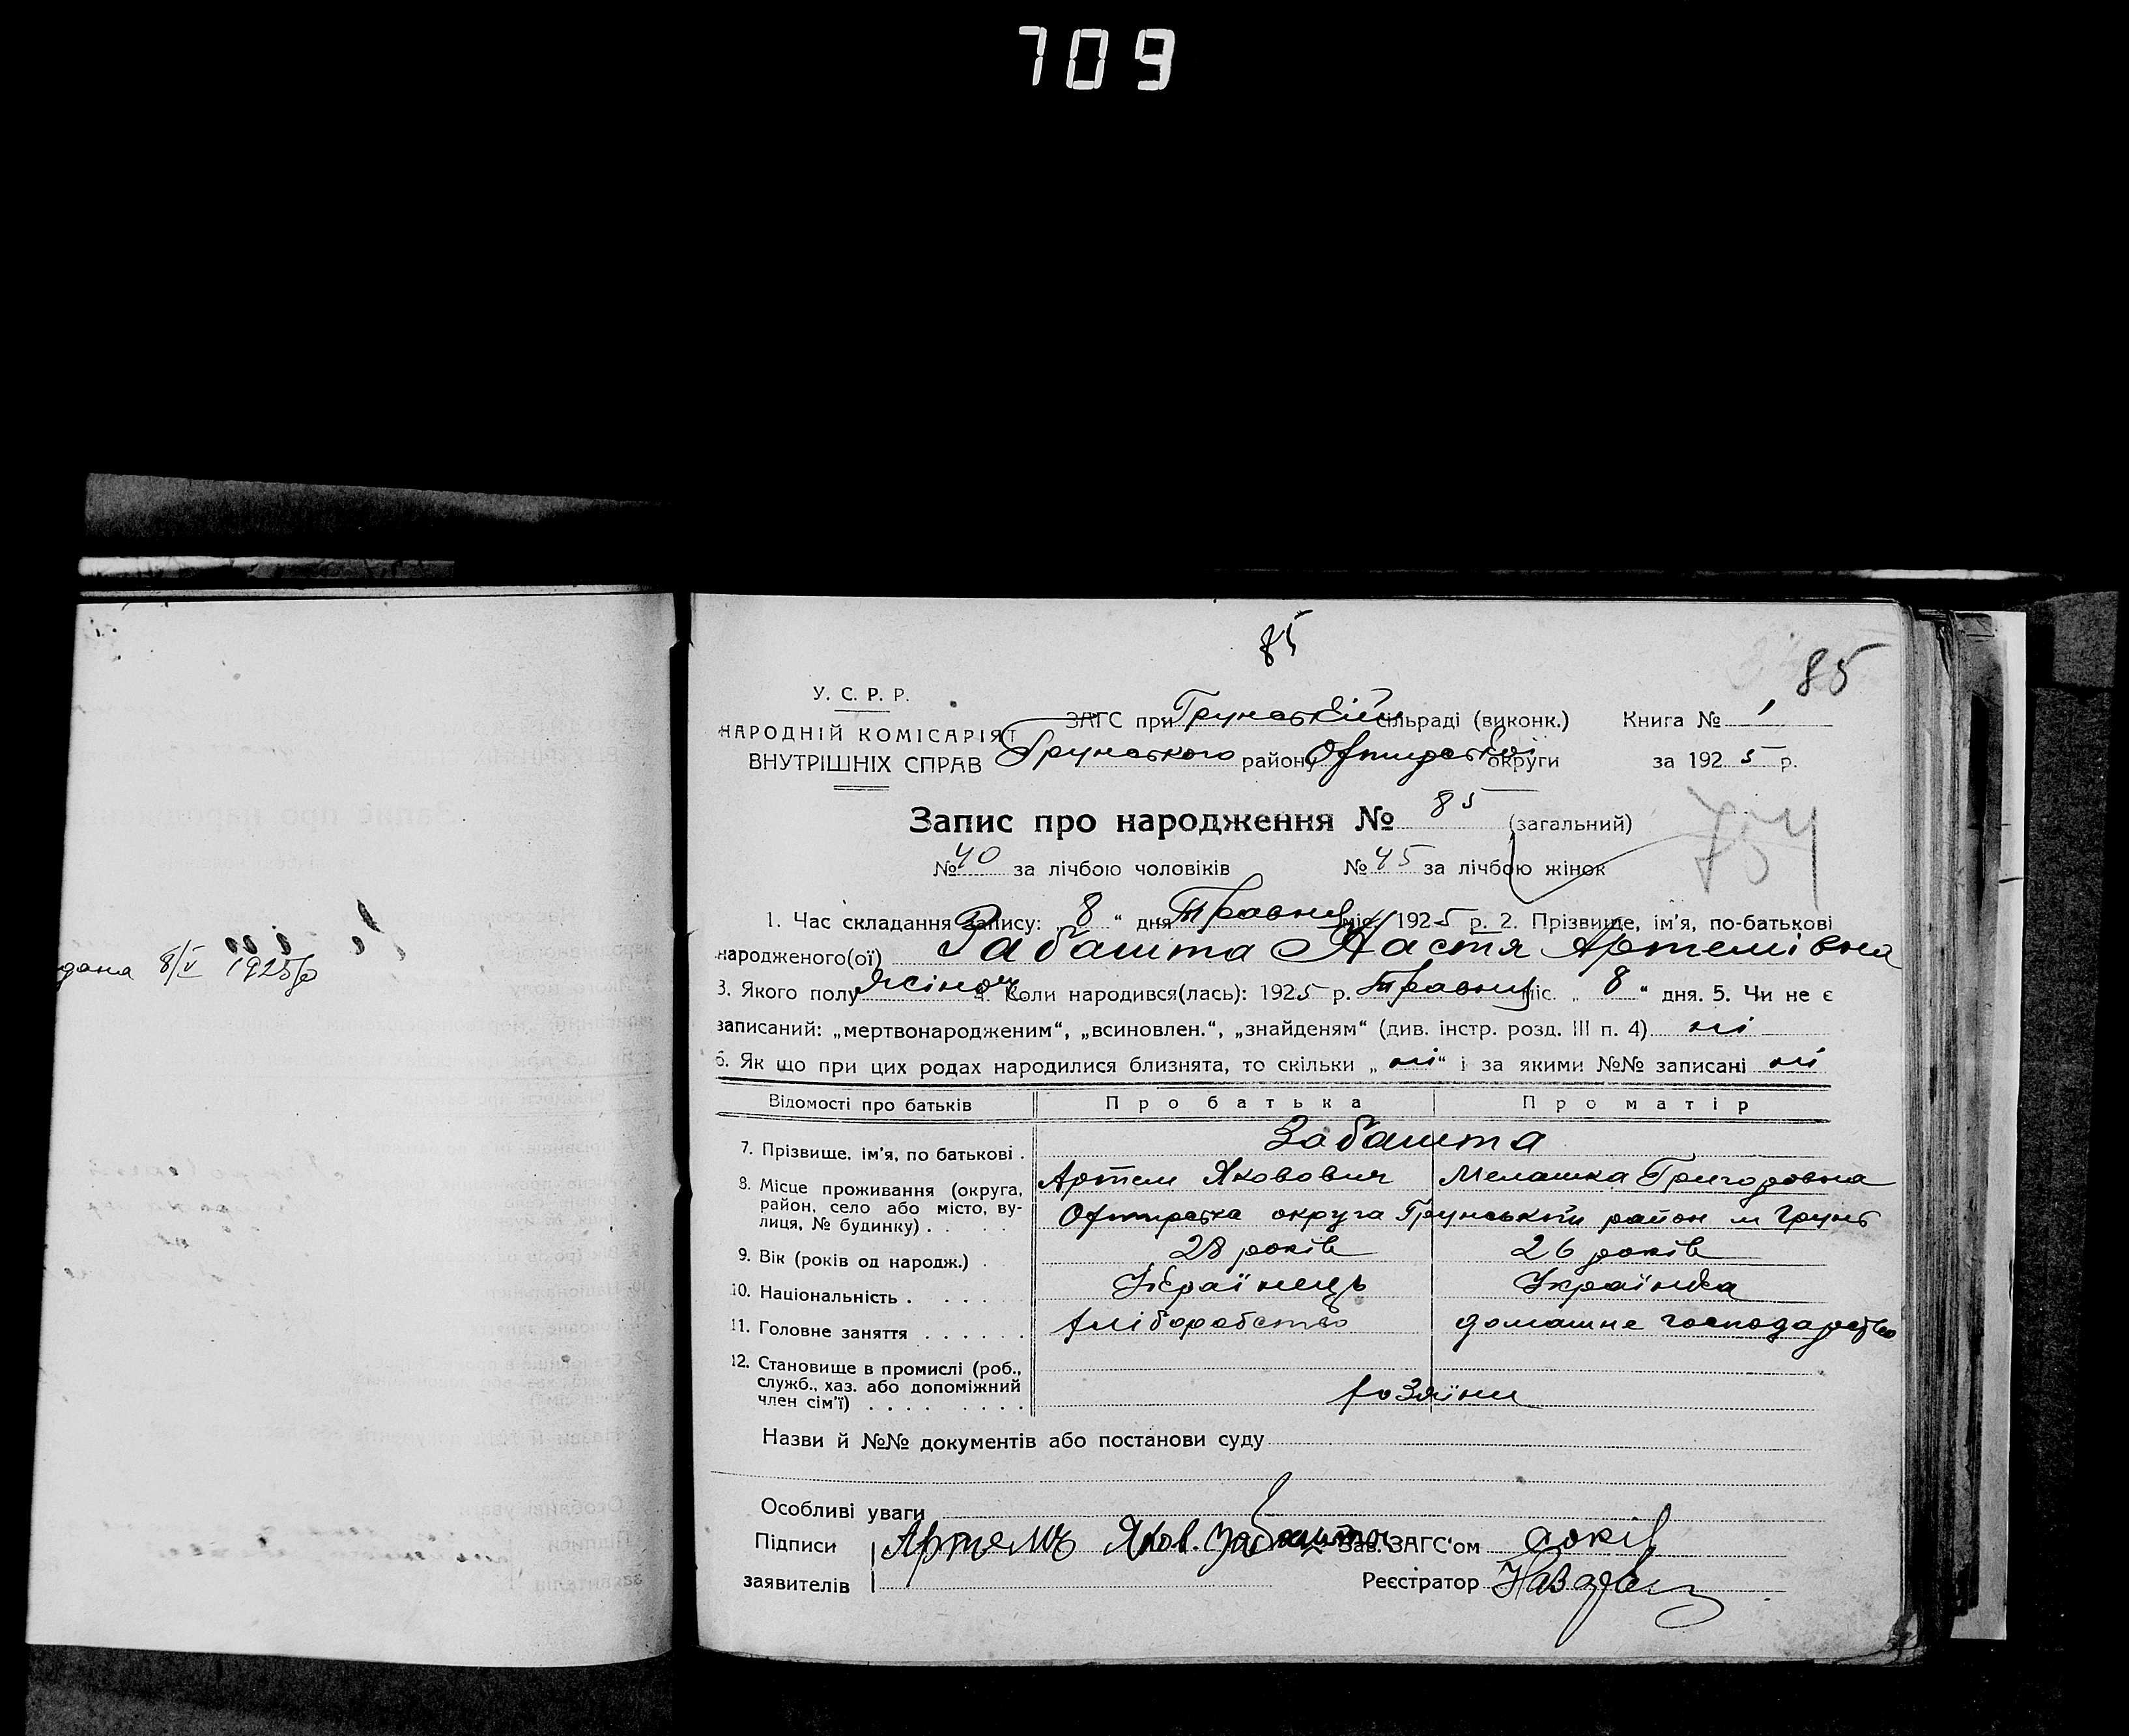 709
85
85
У. С. Р. Р.
НАРОДНІЙ КОМІСАРІЯТ
ВНУТРІШНІХ СПРАВ
ЗАГС при Грунській сільраді (виконк.) Книга № 1
Грунського району Охтирської округи за 1925 р.
Запис про народження № 85 (загальний)
754
№ 40 за лічбою чоловіків № 45 за лічбою жінок
1. Час складання запису: „ 8 “ дня Травня міс. 1925 р. 2. Прізвище, ім'я, по-батькові
народженого(ої) Забашта Настя Артемівна
3. Якого полу жіноч. 4. Коли народився(лась): 1925 р. Травня міс. „ 8 “ дня. 5. Чи не є
записаний: „мертвонародженим“, „всиновлен.“, „знайденям“ (див. інстр. розд. III п. 4) ні
6. Як що при цих родах народилися близнята, то скільки „ ні “ і за якими №№ записані ні
Відомості про батьків Про батька Про матір
7. Прізвище, ім'я, по батькові . Забашта
Артем Якович Мелашка Григоровна
8. Місце проживання (округа,
район, село або місто, ву-
лиця, № будинку) . . . Охтирська округа Грунський район м Грунь
9. Вік (років од народж.) . 28 років 26 років
10. Національність . . . . Українець Українка
11. Головне заняття . . . . . . хліборобство домашне господарство
12. Становище в промислі (роб.,
служб., хаз. або допоміжний
член сім'ї) . . . . . . . . хозяїни
Назви й №№ документів або постанови суду
Особливі уваги
Підписи Артемъ Яков. Забашта Зав. ЗАГС'ом
заявителів Реєстратор
дана 8/V 1925 р